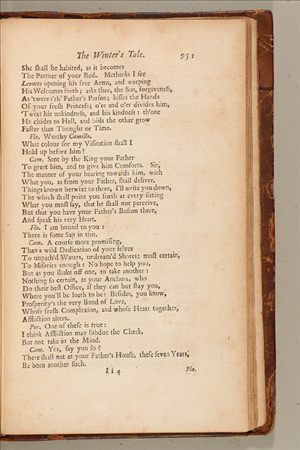 The Winter's Tale. 951
She shall be habited, as it becomes
The Partner of your Bed. Methinks I see
Leontes opening his free Arms, and weeping
His Welcomes forth; asks thee, the Son, forgiveness,
As 'twere i'th' Father's Person; kisses the Hands
Of your fresh Princess; o'er and o'er divides him,
'Twixt his unkindness, and his kindness: th'one
He chides to Hell, and bids the other grow
Faster than Thought or Time.
Flo. Worthy Camillo,
What colour for my Visitation shall I
Hold up before him?
Cam. Sent by the King your Father
To greet him, and to give him Comforts. Sir,
The manner of your bearing towards him, with
What you, as from your Father, shall deliver,
Things known betwixt us three, I'll write you down,
The which shall point you forth at every sitting
What you must say, that he shall not perceive,
But that you have your Father's Bosom there,
And speak his very Heart.
Flo. I am bound to you:
There is some Sap in this.
Cam. A course more promising,
Than a wild Dedication of your selves
To unpath'd Waters, undream'd Shores; most certain,
To Miseries enough: No hope to help you,
But as you shake off one, to take another:
Nothing so certain, as your Anchors, who
Do their best Office, if they can but stay you,
Where you'll be loath to be: Besides, you know,
Prosperity's the very Bond of Love,
Whose fresh Complexion, and whose Heart together,
Affliction alters.
Per. One of these is true:
I think Affliction may subdue the Cheek,
But not take in the Mind.
Cam. Yea, say you so?
There shall not at your Father's House, these seven Years,
Be born another such.
Iii4 Flo.